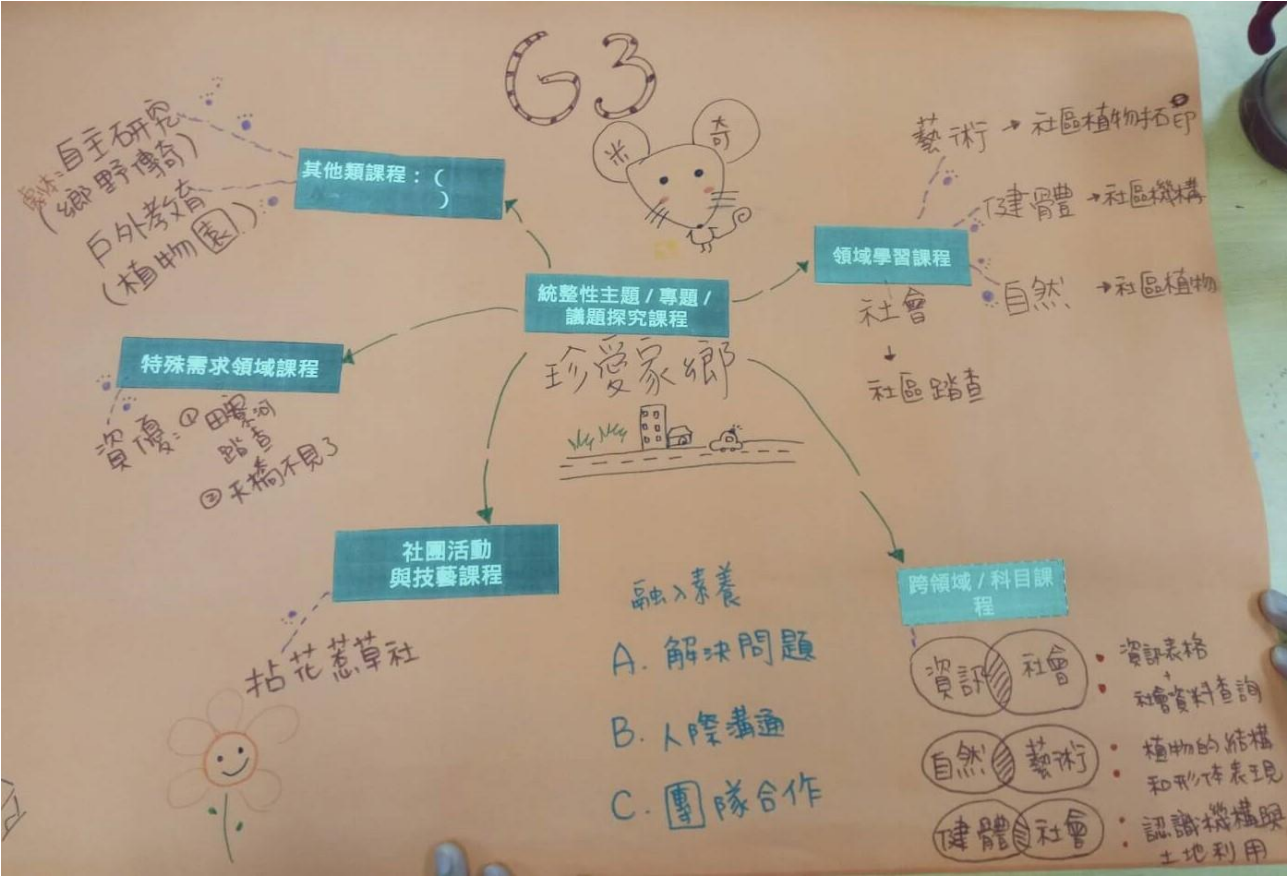 G3
米 奇
其他類課程：(
)
自主研究
(鄉野傳奇)
戶外教育
(植物園)
統整性主題 / 專題 /
議題探究課程
珍愛家鄉
領域學習課程
藝術 → 社區植物拓印
健體 → 社區機構
自然 → 社區植物
社會
↓
社區踏查
特殊需求領域課程
資優：① 田寮河
踏查
② 天橋不見了
社團活動
與技藝課程
拈花惹草社
融入素養
A. 解決問題
B. 人際溝通
C. 團隊合作
跨領域 / 科目課
程
資訊 社會
• 資訊表格
+
• 社會資料查詢
自然 藝術
• 植物的結構
• 和形体表現
健體 社會
• 認識機構與
土地利用